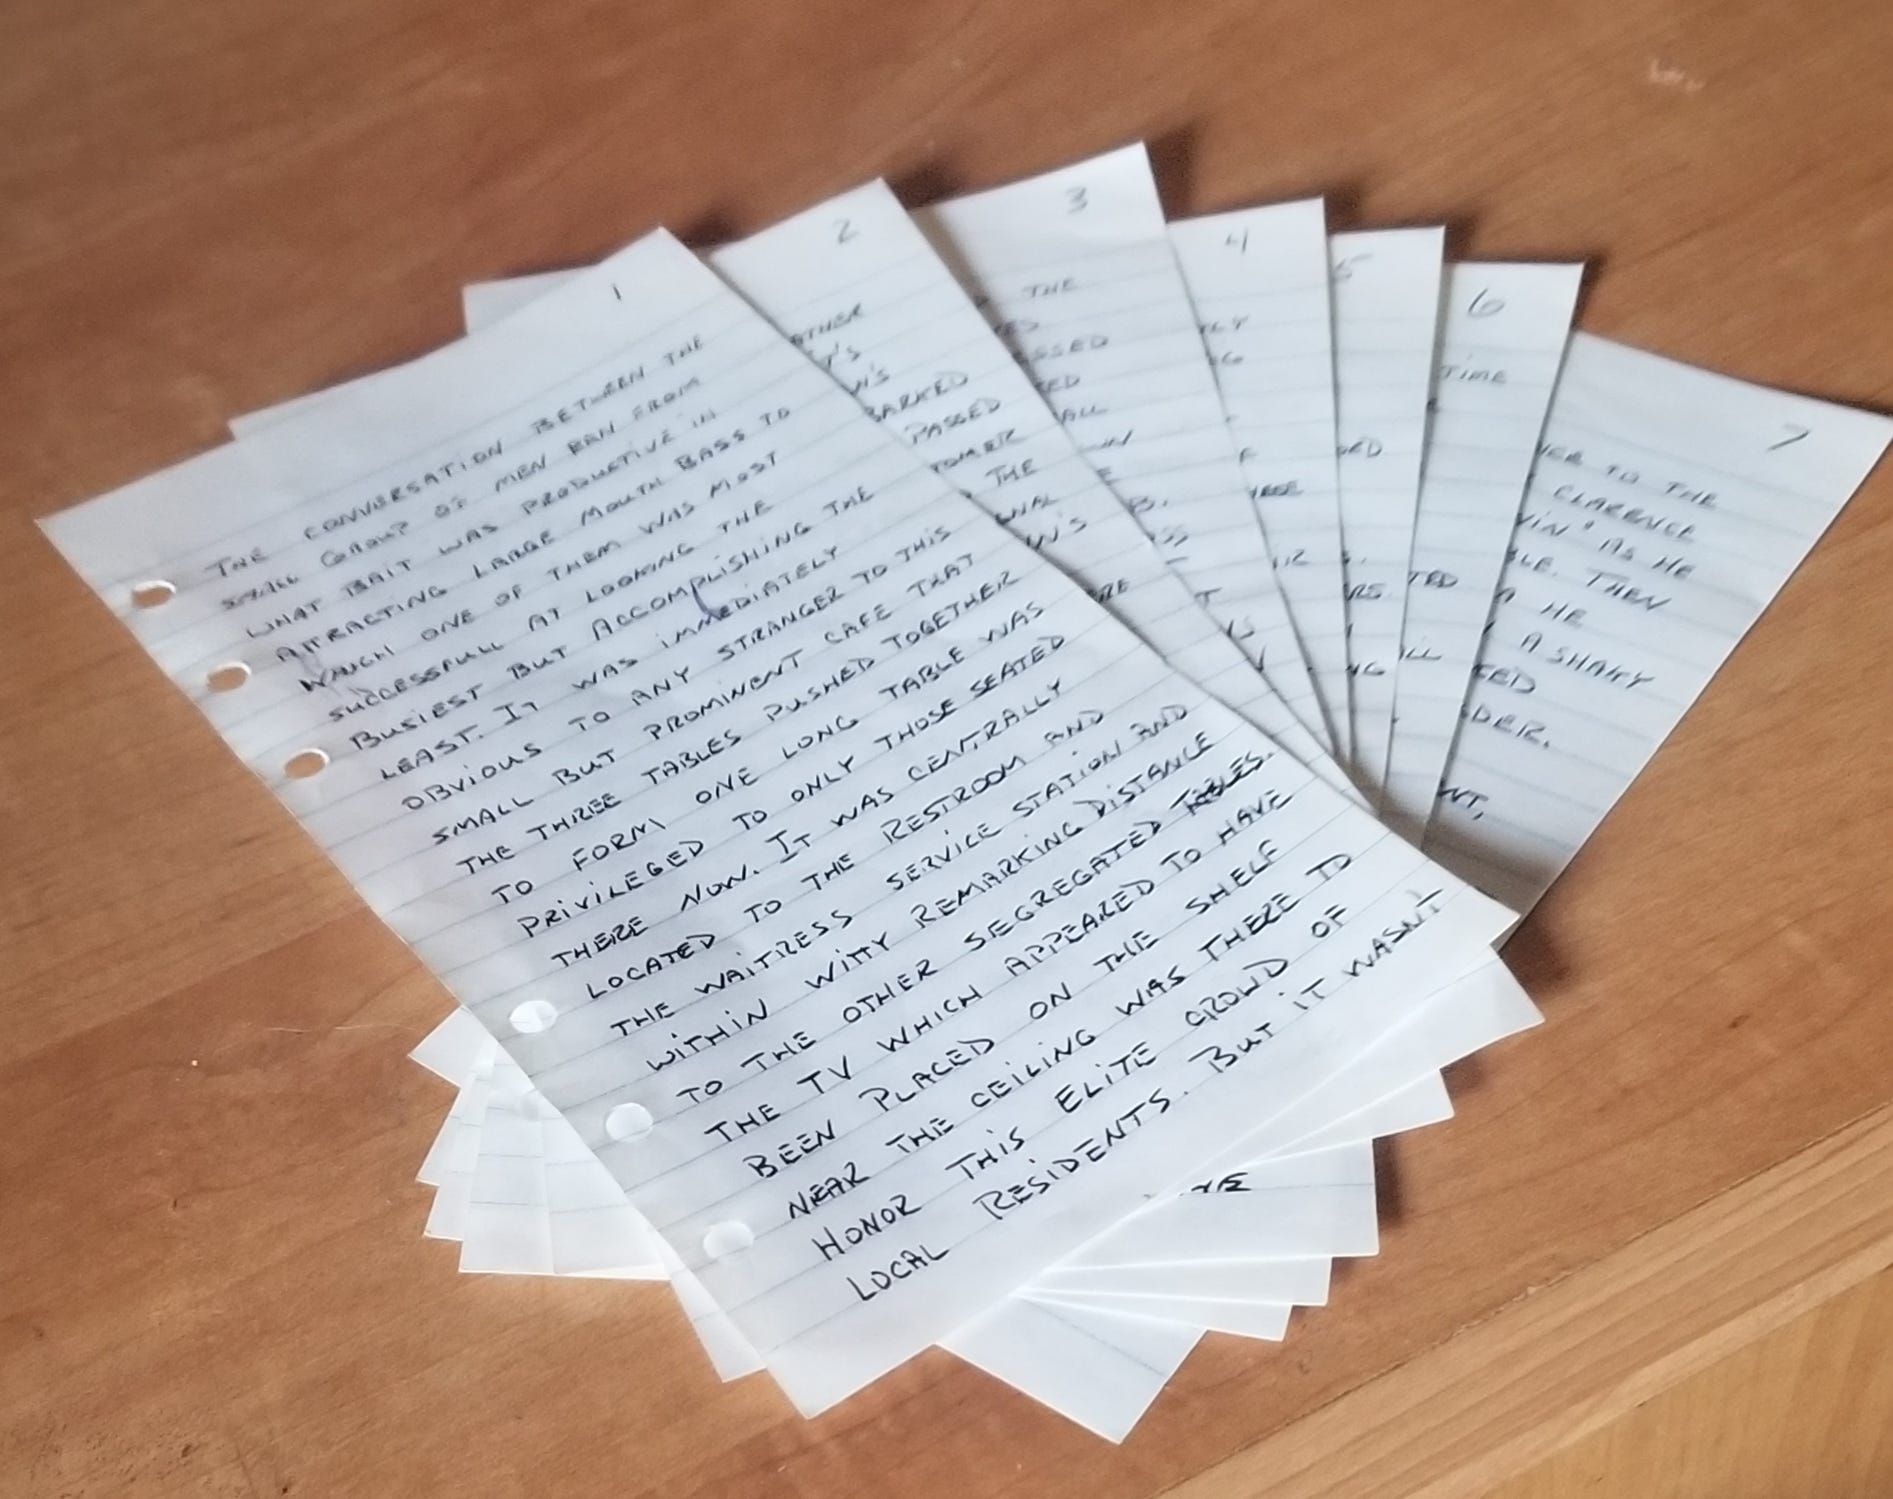 1
THE CONVERSATION BETWEEN THE
SMALL GROUP OF MEN RAN FROM
WHAT BAIT WAS PRODUCTIVE IN
ATTRACTING LARGE MOUTH BASS TO
WHICH ONE OF THEM WAS MOST
SUCCESSFULL AT LOOKING THE
BUSIEST BUT ACCOMPLISHING THE
LEAST. IT WAS IMMEDIATELY
OBVIOUS TO ANY STRANGER TO THIS
SMALL BUT PROMINENT CAFE THAT
THE THREE TABLES PUSHED TOGETHER
TO FORM ONE LONG TABLE WAS
PRIVILEGED TO ONLY THOSE SEATED
THERE NOW. IT WAS CENTRALLY
LOCATED TO THE RESTROOM AND
THE WAITRESS SERVICE STATION AND
WITHIN WITTY REMARKING DISTANCE
TO THE OTHER SEGREGATED TABLES.
THE TV WHICH APPEARED TO HAVE
BEEN PLACED ON THE SHELF
NEAR THE CEILING WAS THERE TO
HONOR THIS ELITE CROWD OF
LOCAL RESIDENTS. BUT IT WASN'T
2
BARKED
PASSED
THE
3
THE
4
5
6
TIME
7
TO THE
CLARENCE
AS HE
THEN
HE
A SHAKY